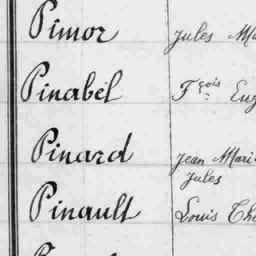 Pimor Jules
Pinabel Fçois
Pinard Jean
Jules
Pinault Louis